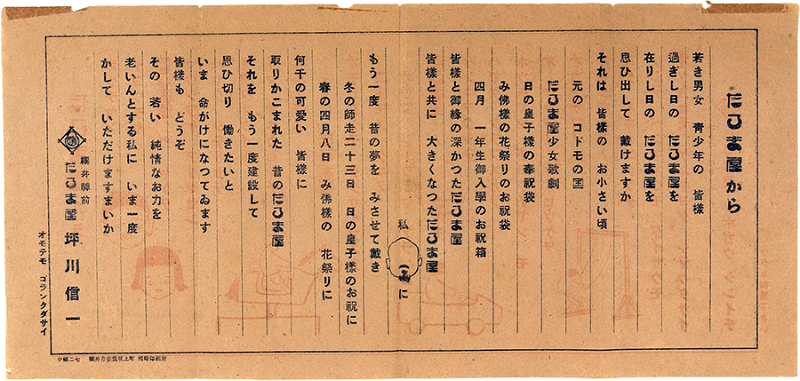 だるま屋から
若き男女 青少年の 皆様
過ぎし日の だるま屋を
在りし日の だるま屋を
思ひ出して 戴けますか
それは 皆様の お小さい頃
元の コドモの国
だるま屋少女歌劇
日の皇子様の奉祝袋
み佛様の花祭りのお祝袋
四月 一年生御入學のお祝箱
皆様と御縁の深かつただるま屋
皆様と共に 大きくなつただるま屋
私
もう一度 昔の夢を みさせて戴き
冬の師走二十三日 日の皇子様のお祝に
春の四月八日 み佛様の 花祭りに
何千の可愛い 皆様に
取りかこまれた 昔のだるま屋
それを もう一度建設して
思ひ切り 働きたいと
いま 命がけになつてゐます
皆様も どうぞ
その 若い 純情なお力を
老いんとする私に いま一度
かして いただけますまいか
福井驛前
だるま屋 坪川信一
オモテモ ゴランクダサイ